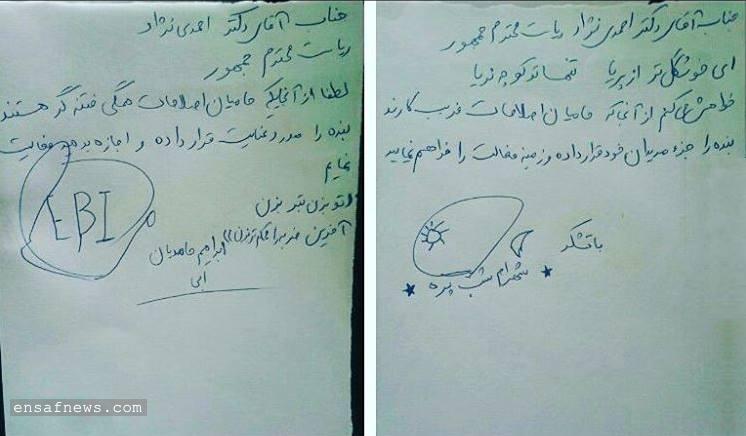 جناب آقای دکتر احمدی نژاد
ریاست محترم جمهور
لطفا از آنجاییکه حامیان اصلاحات همگی فتنه گر هستند
بنده را مورد عنایت قرار داده و اجازه بدهید فعالیت
نمایم
تو بزن تبر بزن
آفرین ضربه را محکم تر بزن))
EBI
ابراهیم حامدیان
ابی
جناب آقای دکتر احمدی نژاد ریاست محترم جمهور
ای خوشگل تر از پریا تنها تو کوچه نریا
خواهش میکنم از آنجا که حامیان اصلاحات فریب کارند
بنده را جزء مریدان خود قرار داده و زمینه فعالیت را فراهم نمایید
با تشکر
شهرام شب پره
ensafnews.com